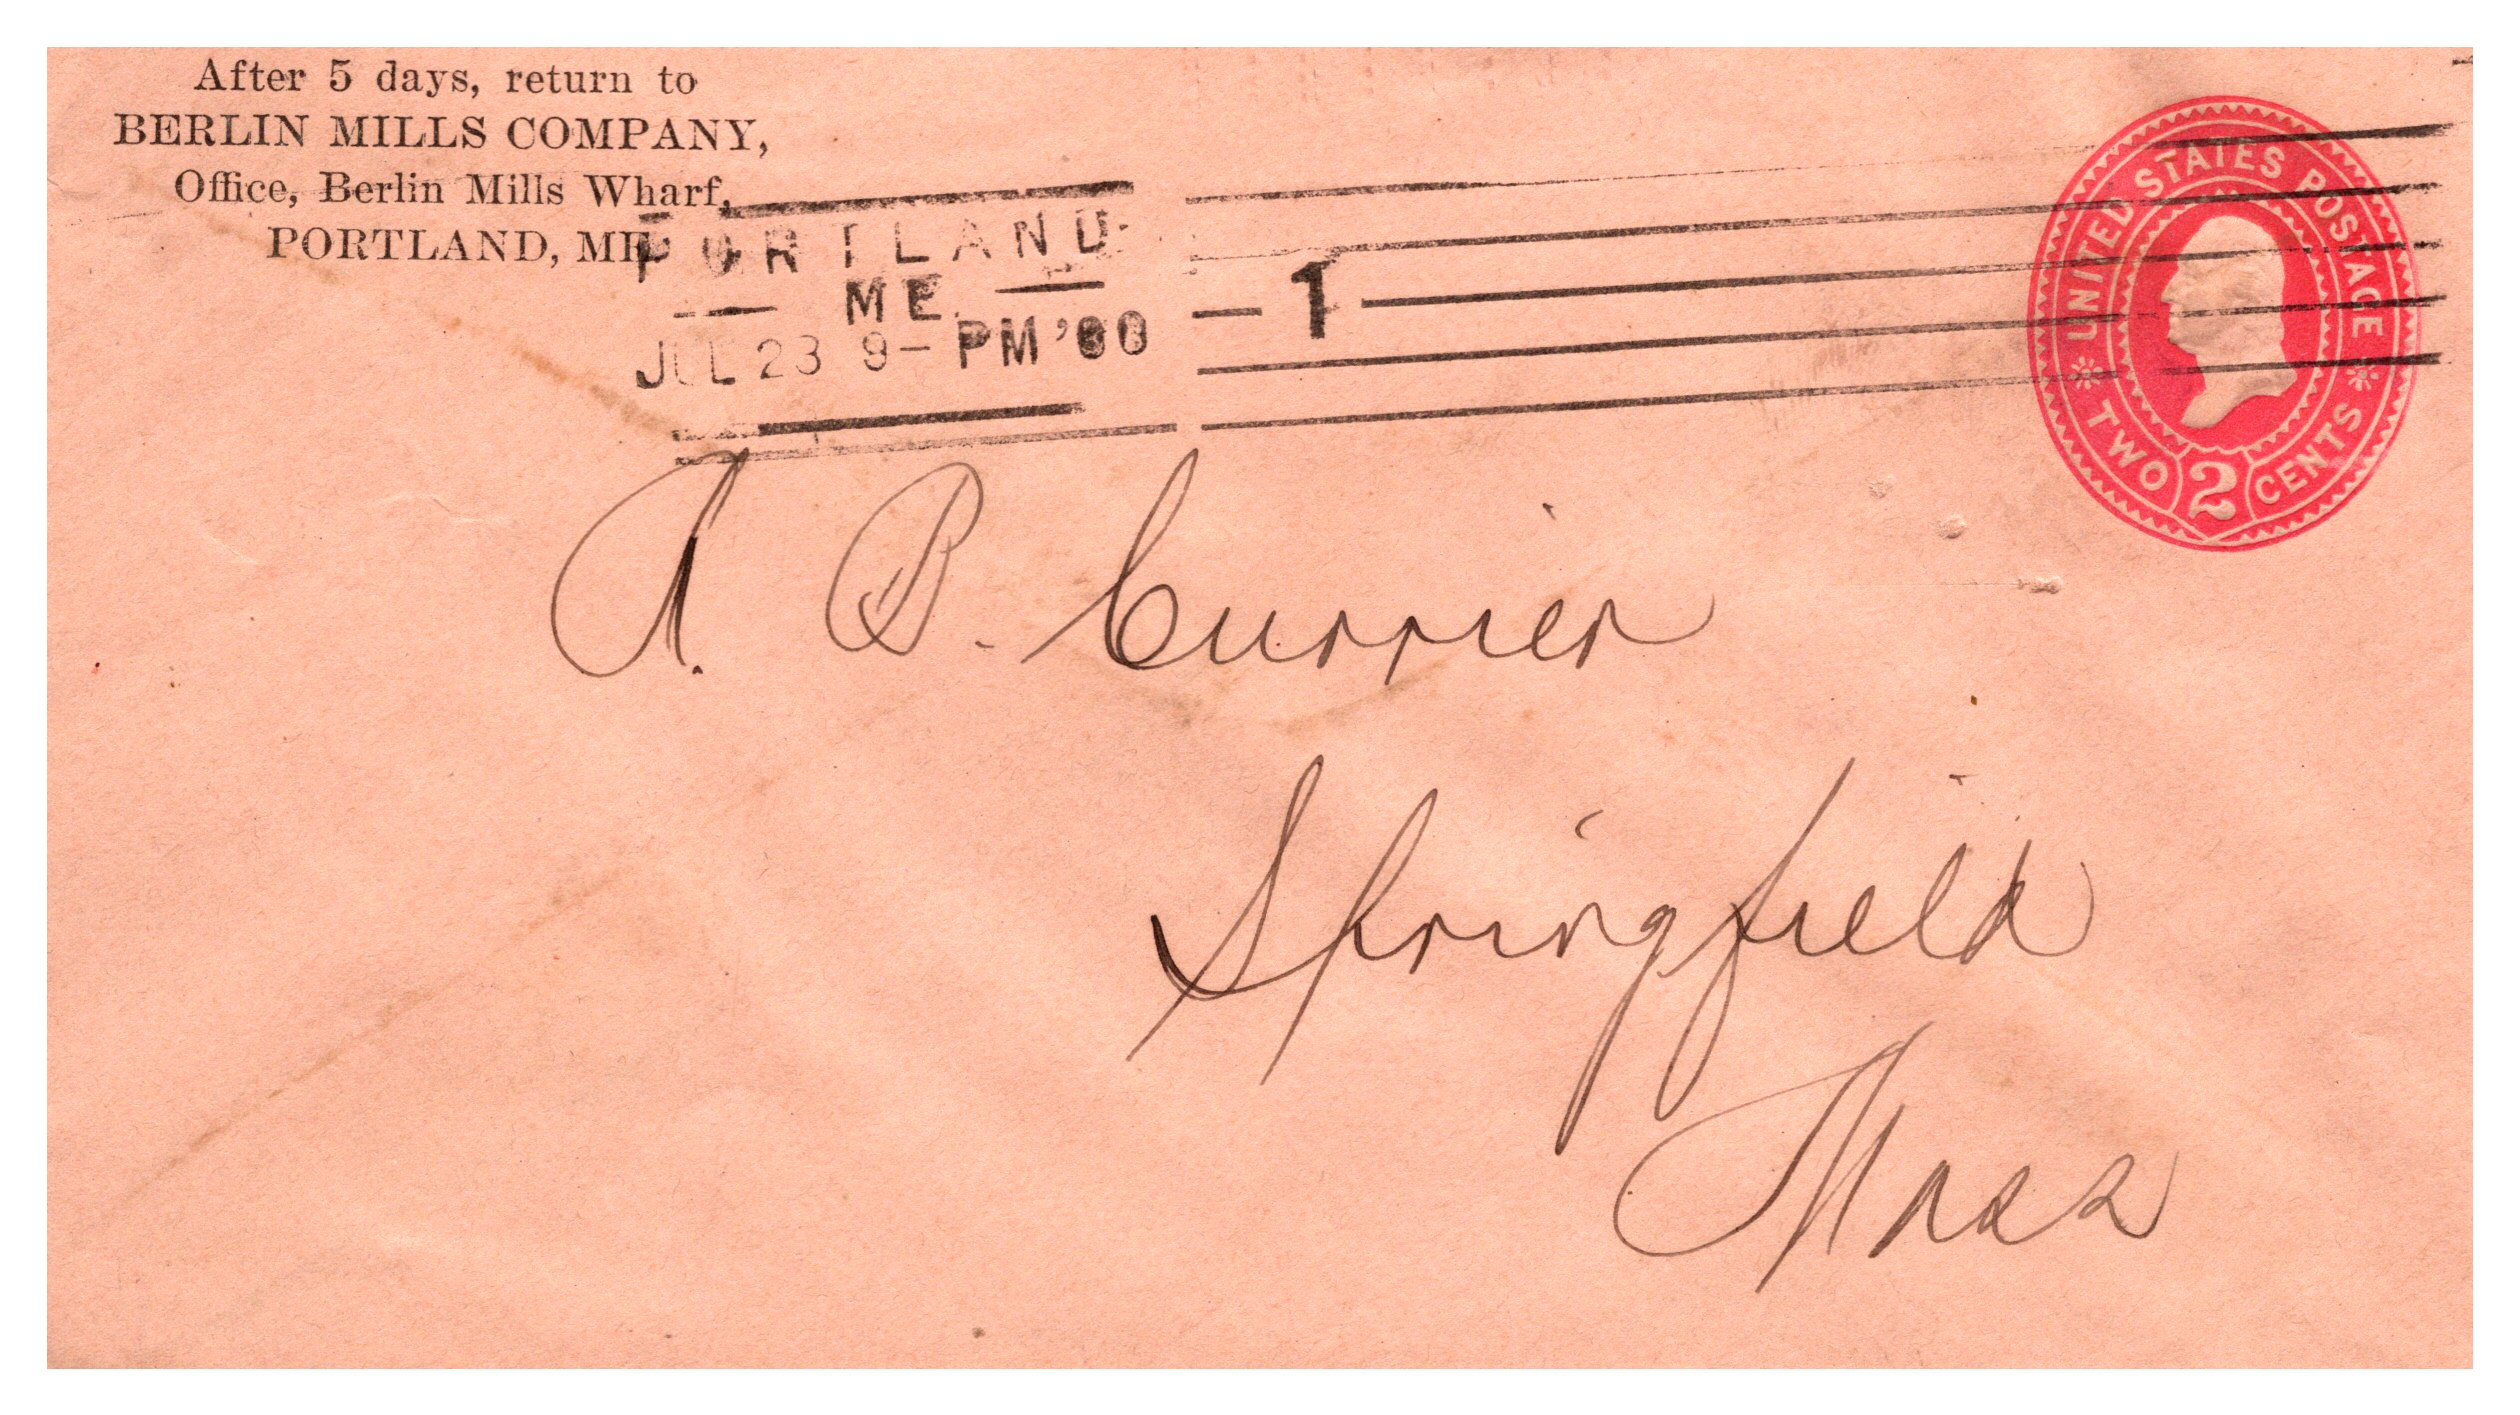 After 5 days, return to
BERLIN MILLS COMPANY,
Office, Berlin Mills Wharf,
PORTLAND, ME
PORTLAND
ME.
JUL 23 9- PM
1
UNITED STATES POSTAGE
TWO 2 CENTS
A. B. Currier
Springfield
Mass